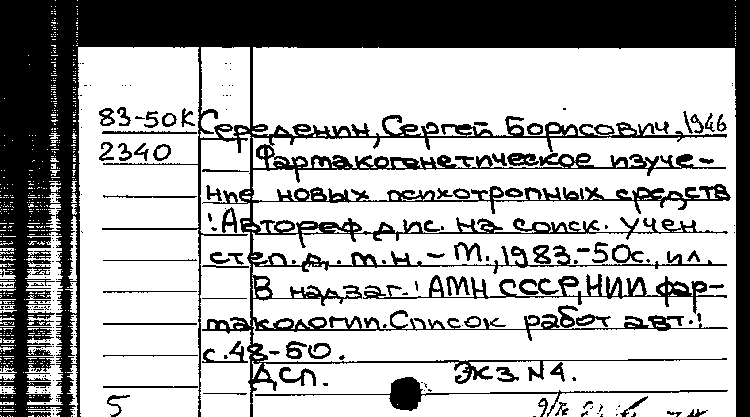 83-50К Середенин, Сергей Борисович, 1946
2340 Фармакогенетическое изуче-
ние новых психотропных средств
! Автореф. дис. на соиск. учен
степ. д. м. н. - М., 1983. - 50с., ил.
В надзаг.! АМН СССР, НИИ фар-
макологии. Список работ авт.!
с. 48-50.
ДСП. Экз. N4.
5